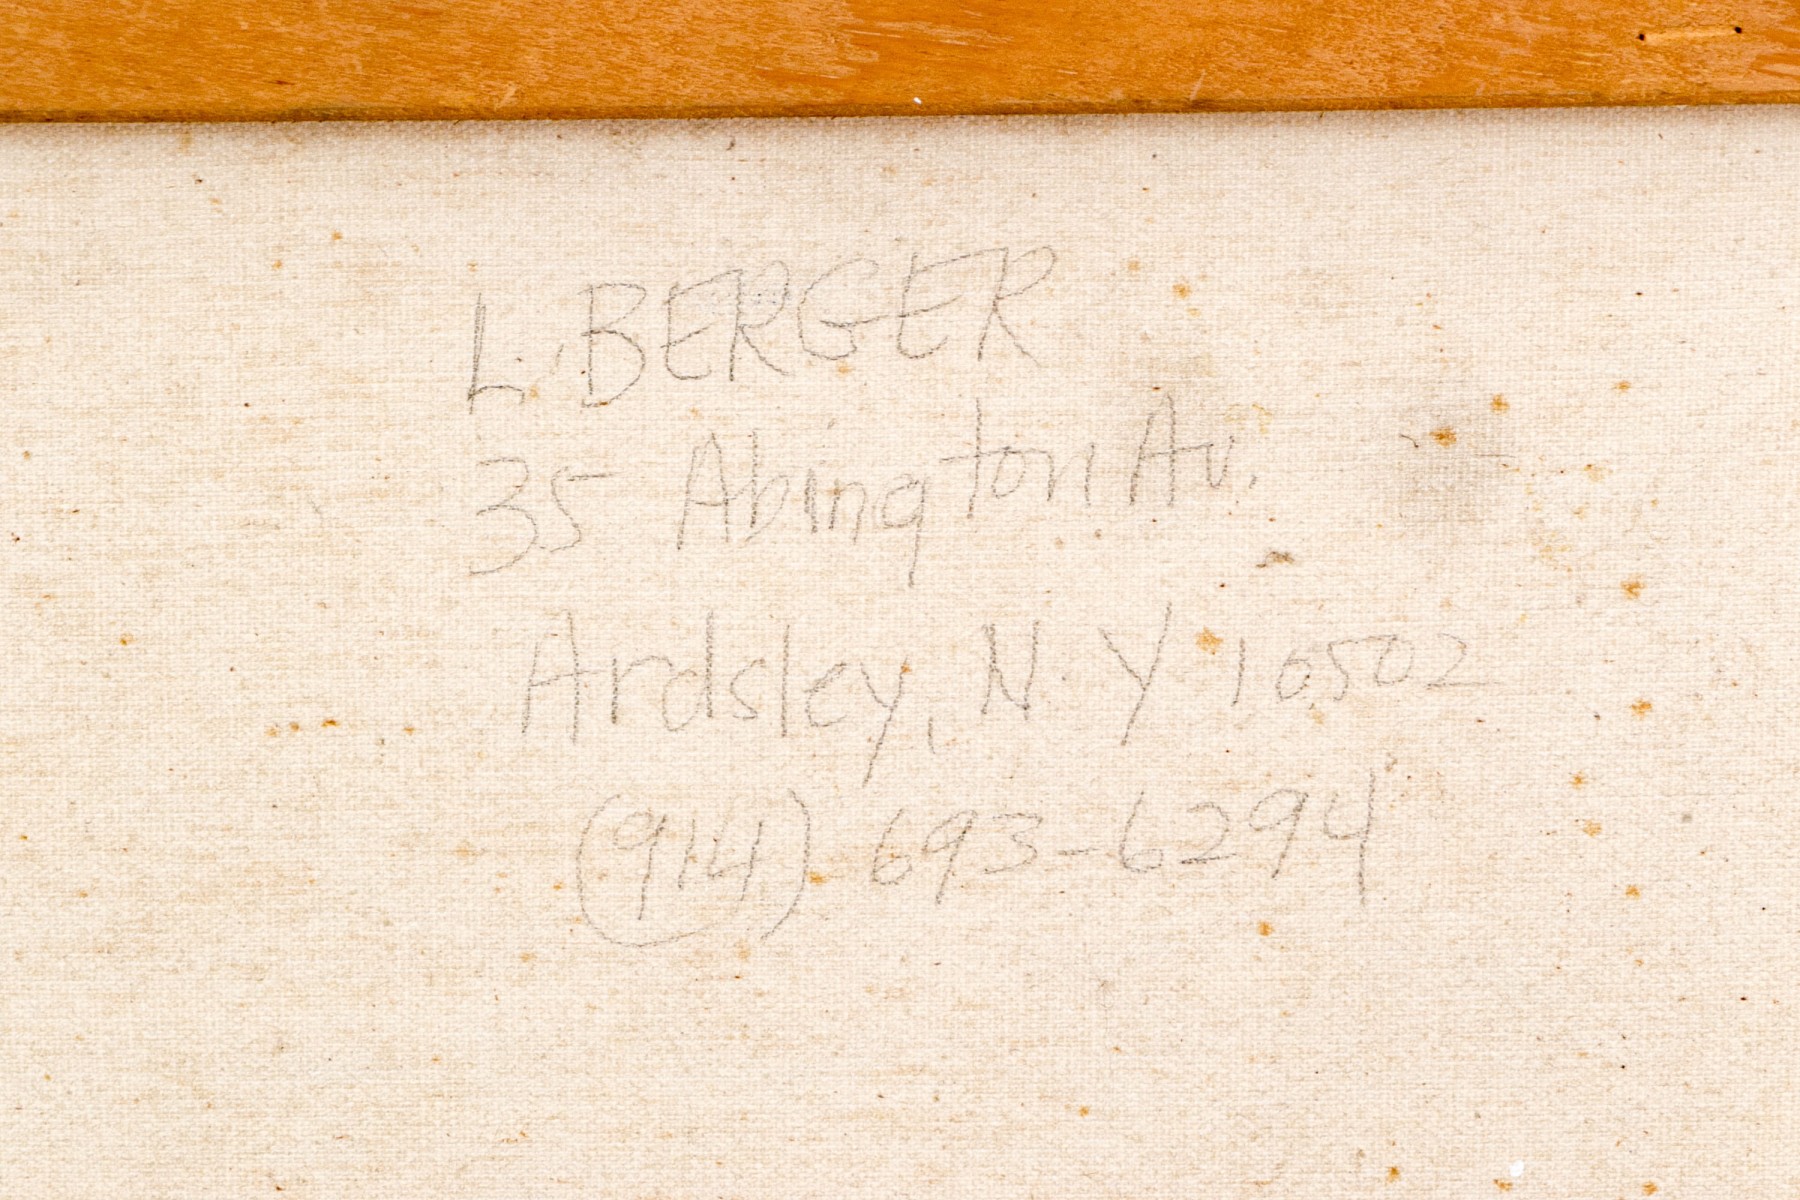 L. BERGER
35 Abington Av.
Ardsley, N.Y 10502
(914) 693-6294